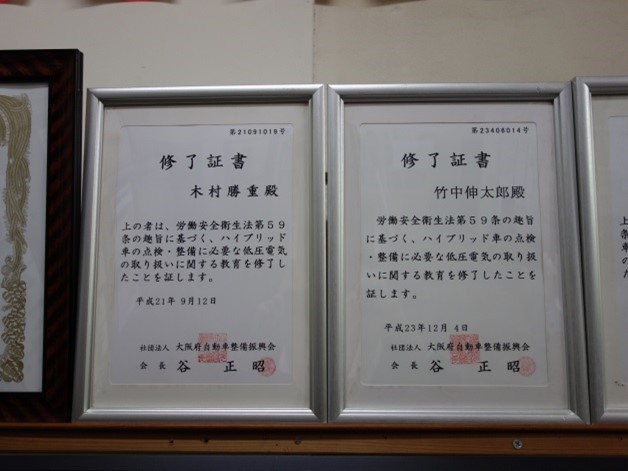 第21091019号
修了証書
木村勝重殿
上の者は、労働安全衛生法第59
条の趣旨に基づく、ハイブリッド
車の点検・整備に必要な低圧電気
の取り扱いに関する教育を修了し
たことを証します。
平成21年 9月12日
社団法人 大阪府自動車整備振興会
会長 谷 正昭
第23406014号
修了証書
竹中伸太郎殿
労働安全衛生法第59条の趣旨
に基づく、ハイブリッド車の点検
・整備に必要な低圧電気の取り扱
いに関する教育を修了したことを
証します。
平成23年12月 4日
社団法人 大阪府自動車整備振興会
会長 谷 正昭